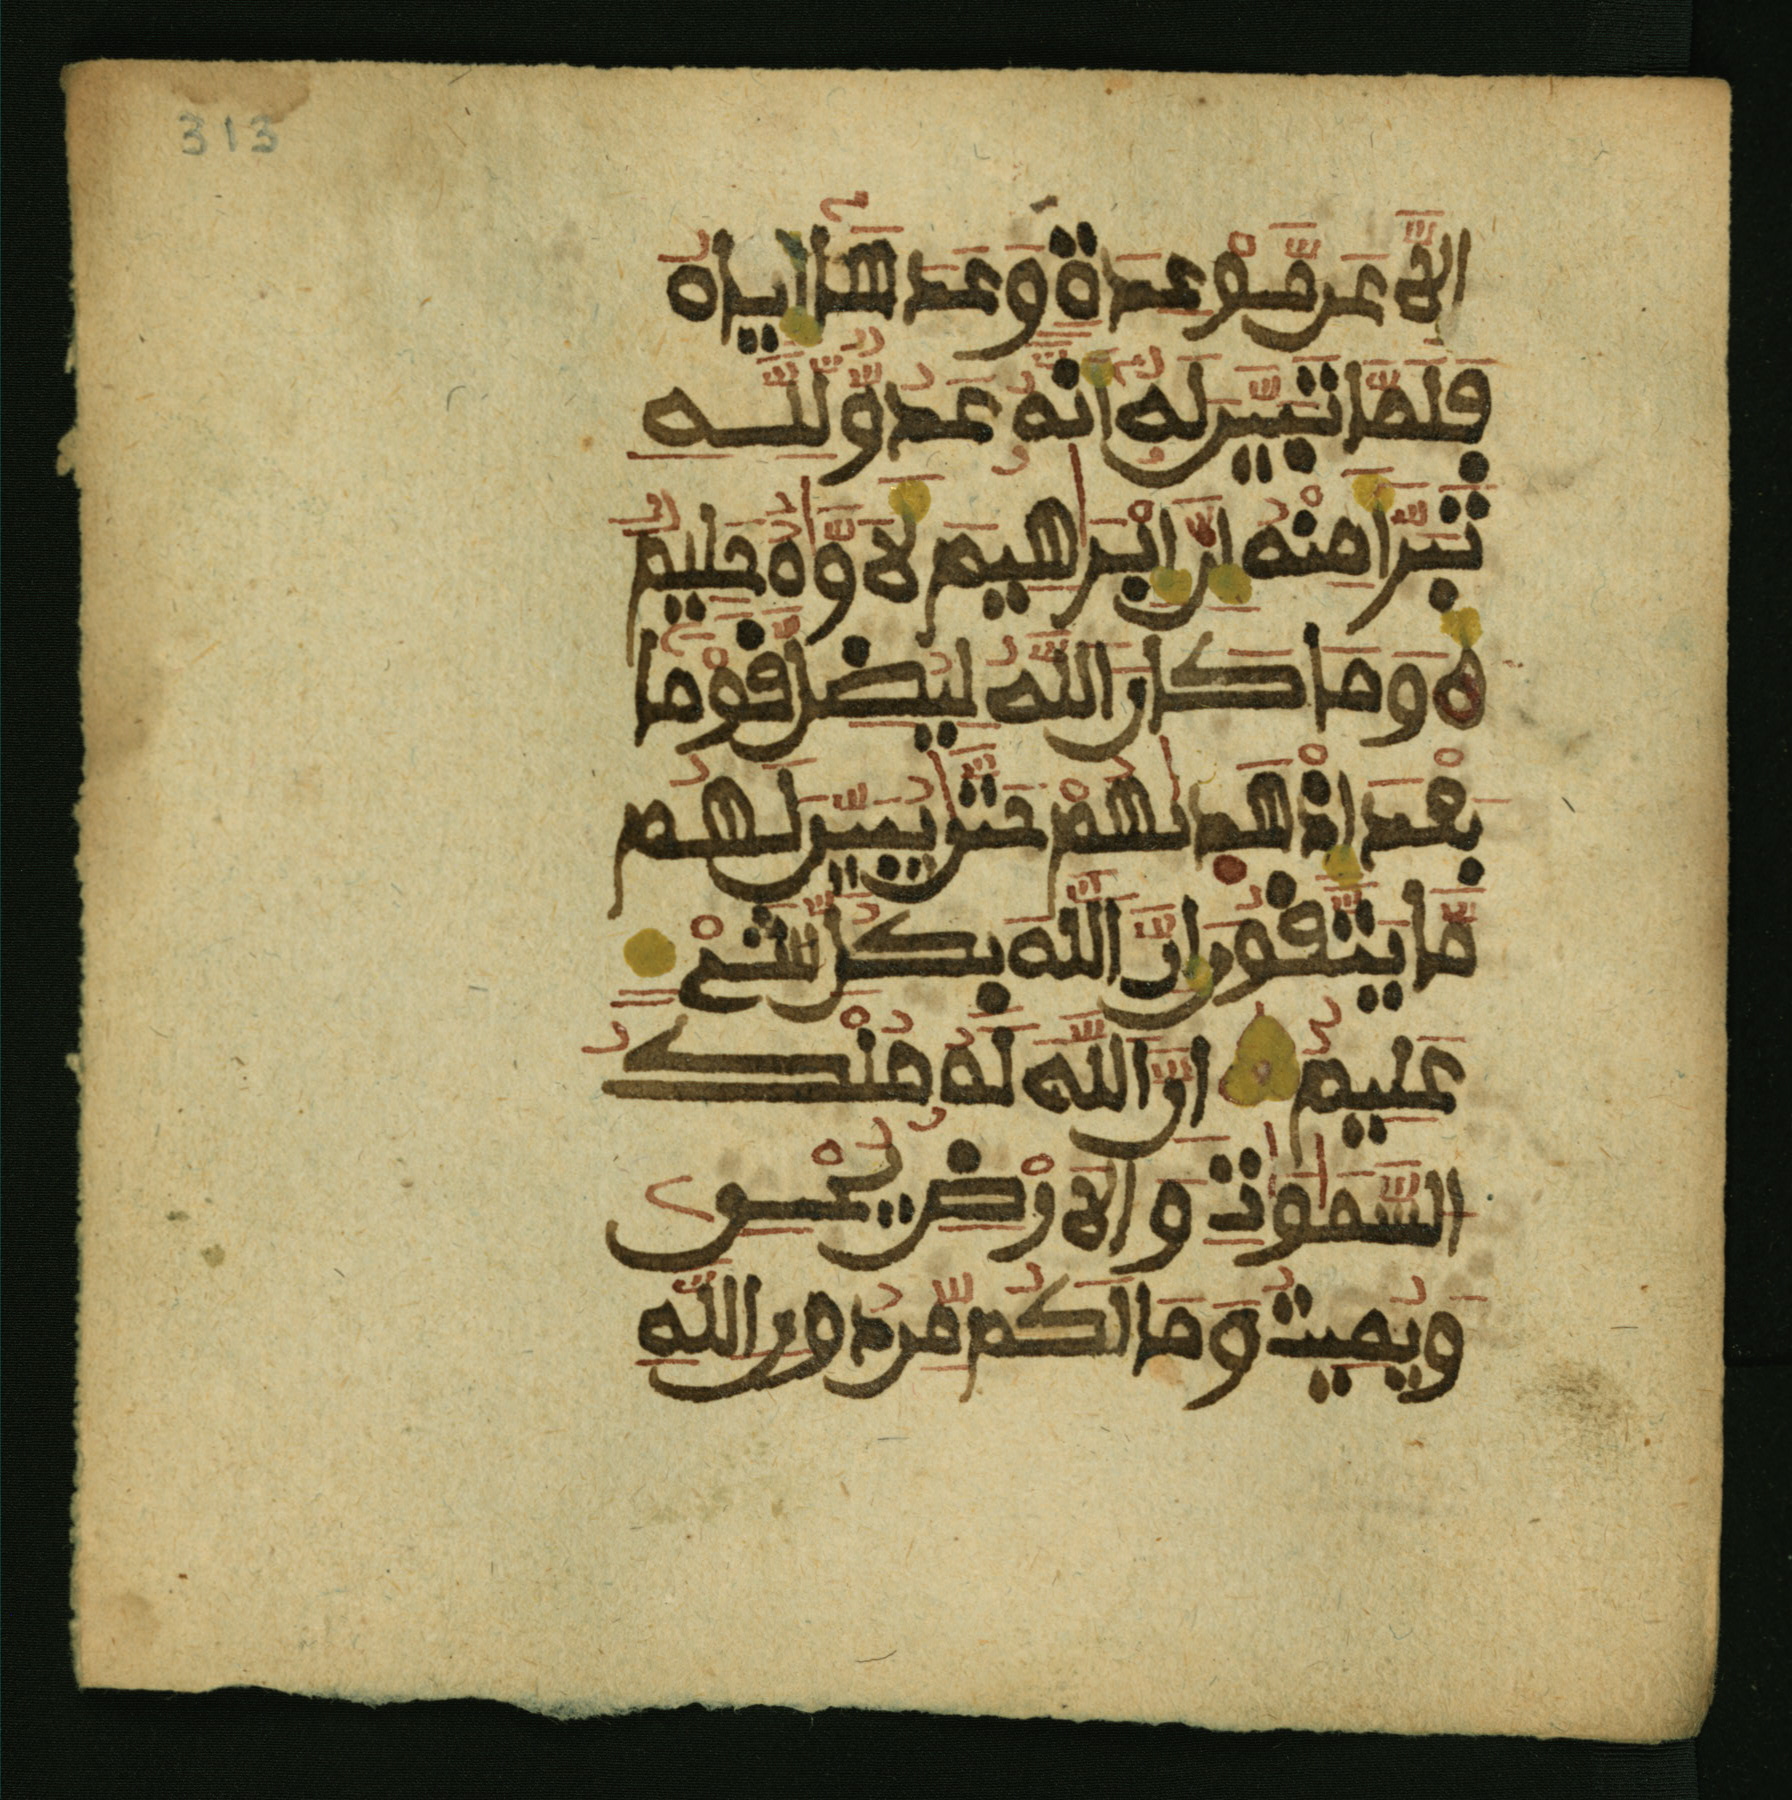 313
الا عن موعدة وعدها اياه
فلما تبين له انه عدو لله
تبرا منه ان ابرهيم لاوه حليم
وما كان الله ليضل قوما
بعد اذ هديهم حتى يبين لهم
ما يتقون ان الله بكل شيء
عليم ان الله له ملك
السموت والارض يحي
ويميت وما لكم من دون الله